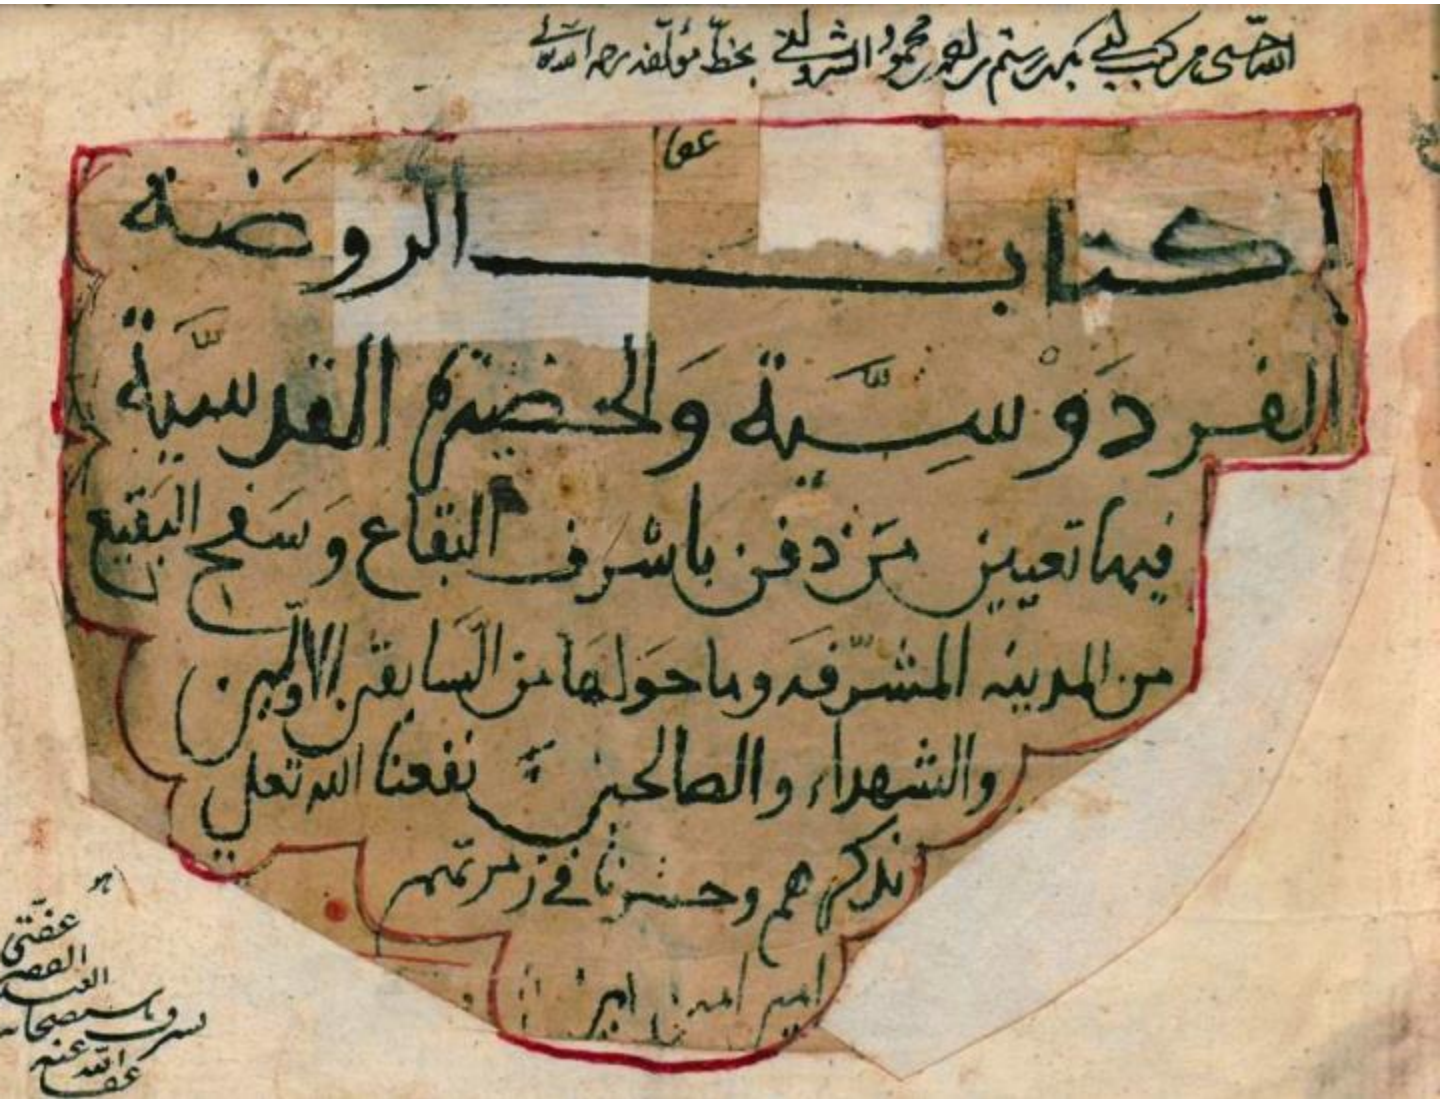 من كتب محمد رستم بن محمود الشرواني بخط مؤلفه رحمه الله
عفا
كتاب الروضة
الفردوسيّة وَالحضيرة القدسيّة
فيها تعيين مَن دفن باشرف البقاع وَسَفح البَقيع
من المدينه المشرّفه وما حَولها من السّابقين الاوّلين
والشهداء والصالحين نفعنا الله تعلى
بذكرهم وحشرنا في زمرتهم
امين امين امين
هو
الفقير
عفا الله عنه